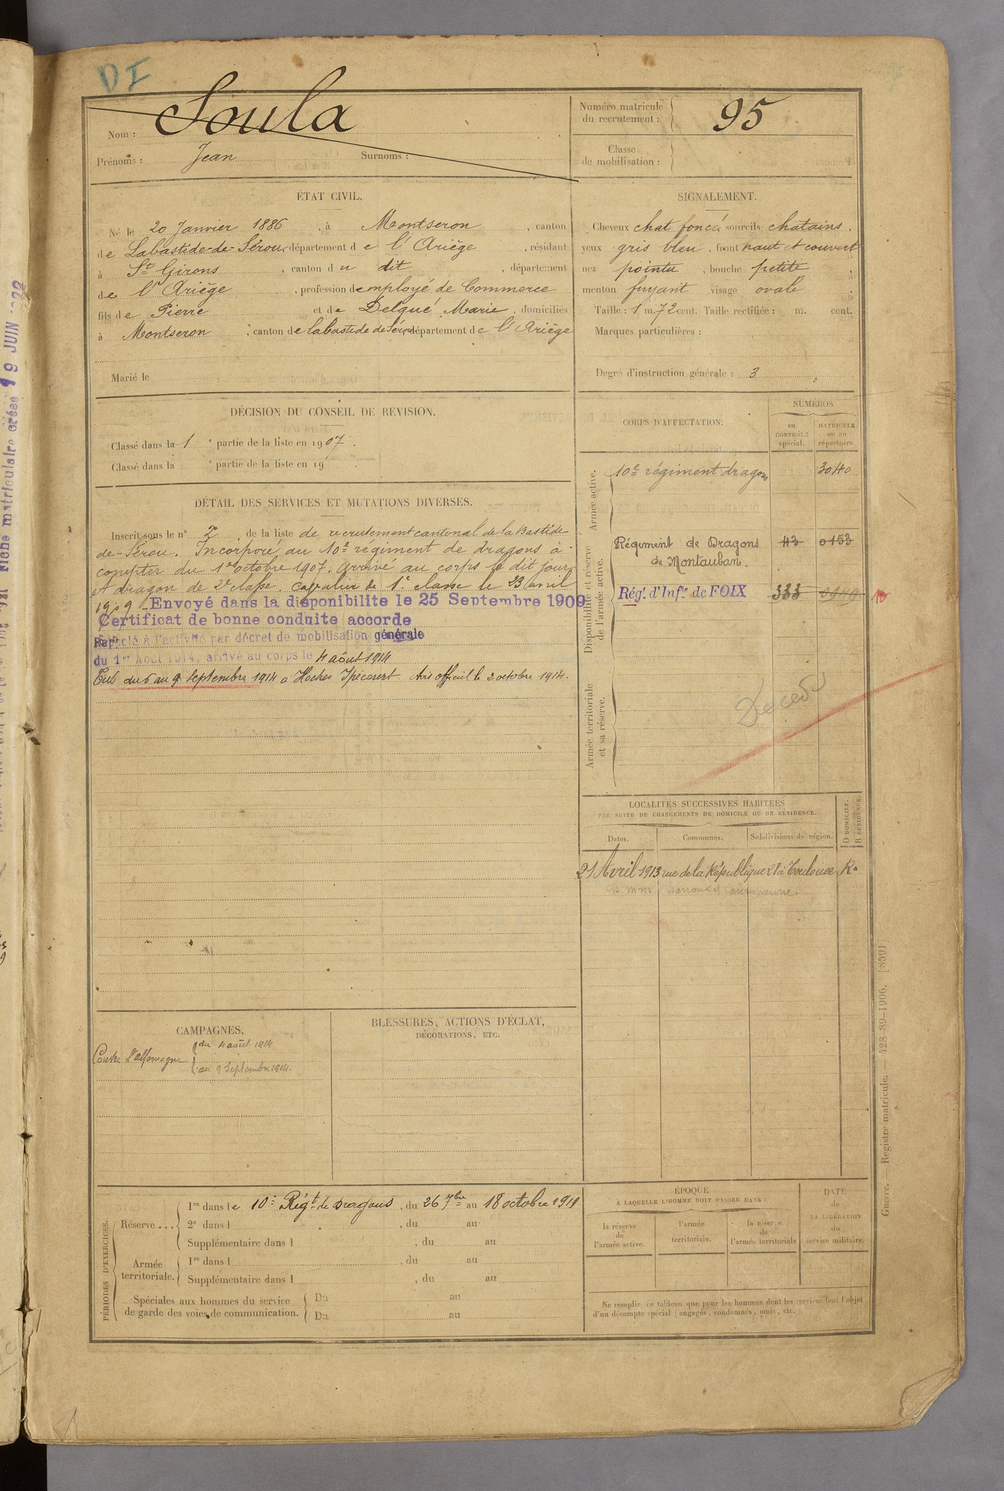 DI
Nom : Soula
Prénoms : Jean Surnoms :
Numéro matricule du recrutement : 95
Classe de mobilisation :
ÉTAT CIVIL.
Né le 20 Janvier 1886, à Montseron, canton
de Labastide-de-Sérou, département de l'Ariège, résidant
à St Girons, canton du dit, département
de l'Ariège, profession d'employé de Commerce
fils de Pierre et de Delqué Marie, domiciliés
à Montseron, canton de labastide de Sérou département de l'Ariège
Marié le
SIGNALEMENT.
Cheveux chat foncé sourcils chatains,
yeux gris bleu, front haut et couvert
nez pointu, bouche petite,
menton fuyant visage ovale
Taille : 1 m. 72 cent. Taille rectifiée : m. cent.
Marques particulières :
Degré d'instruction générale : 3,
DÉCISION DU CONSEIL DE RÉVISION.
Classé dans la 1e partie de la liste en 1907.
Classé dans la e partie de la liste en 19
DÉTAIL DES SERVICES ET MUTATIONS DIVERSES.
Inscrit sous le n° 7, de la liste de recrutement cantonal de la Bastide-
de-Sérou. Incorporé au 10e régiment de dragons à
compter du 1er octobre 1907. Arrivé au corps le dit jour
et dragon de 2e classe. Cavalier de 1e classe le 23 avril
1909. Envoyé dans la disponibilite le 25 Septembre 1909
Certificat de bonne conduite accorde
Rappelé à l'activité par décret de mobilisation générale
du 1er Août 1914, arrivé au corps le 4 août 1914
Tué du 6 au 9 Septembre 1914 à Avis officiel le 2 octobre 1914.
CORPS D'AFFECTATION.
NUMÉROS
au CONTRÔLE spécial.
MATRICULE ou au répertoire.
Armée active.
10e régiment dragons 3040
Disponibilité et réserve de l'armée active.
Régiment de Dragons 43 0153
de Montauban.
Rég. d'Infie de FOIX 333
Armée territoriale et sa réserve.
Décédé
LOCALITÉS SUCCESSIVES HABITÉES
PAR SUITE DE CHANGEMENTS DE DOMICILE OU DE RÉSIDENCE.
Dates. Communes. Subdivisions de région. D DOMICILE. R RÉSIDENCE.
21 Avril 1913 rue de la République 28 à Toulouse R.
CAMPAGNES.
Contre l'allemagne
du 4 août 1914
au 9 Septembre 1914.
BLESSURES, ACTIONS D'ÉCLAT,
DÉCORATIONS, ETC.
PÉRIODES D'EXERCICES.
Réserve ...
1re dans le 10e Régt de Dragons, du 26 7bre au 18 octobre 1911
2e dans l , du au
Supplémentaire dans l , du au
Armée territoriale.
1re dans l , du au
Supplémentaire dans l , du au
Spéciales aux hommes du service de garde des voies de communication.
Du au
Du au
ÉPOQUE
À LAQUELLE L'HOMME DOIT PASSER DANS :
la réserve de l'armée active.
l'armée territoriale.
la réserve de l'armée territoriale
DATE de LA LIBÉRATION du service militaire.
Ne remplir ce tableau que pour les hommes dont les services font l'objet
d'un décompte spécial (engagés, condamnés, omis, etc.
Guerre. Registre matricule. — 428-89-1906. [8591]
Fiche matriculaire créée 19 JUIN